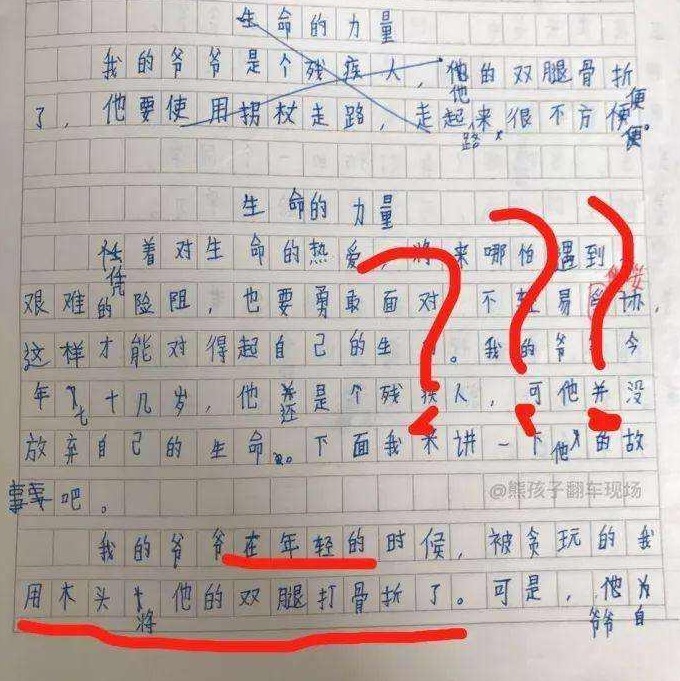 生命的力量
我的爷爷是个残疾人，他的双腿骨折
他
便
了，他要使用拐杖走路，走起来很不方便
路
便。
生命的力量
任着对生命的热爱，将来哪怕遇到
凭
妥
艰难的险阻，也要勇敢面对，不轻易协，
这样才能对得起自己的生。我的爷今
年七十几岁，他并是个残疾人，可他并没
还
放弃自己的生命。下面我来讲一下他的故
@熊孩子翻车现场
事吧。
我的爷爷在年轻的时候，被贪玩的我
用木头将他的双腿打骨折了。可是，他为
爷爷自